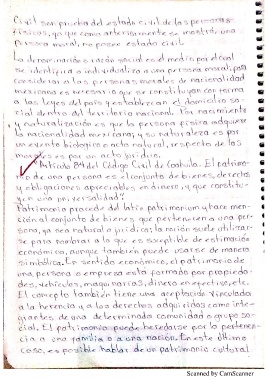 Civil ser prueba del estado civil de las personas
físicas, ya que como anteriormente se mostró una
persona moral, no posee estado civil.
La denominación o razón social es el medio por el cual
se identifica o individualiza a una persona moral, para
considerar a las personas morales de nacionalidad
mexicana es necesario que se constituyan con forma
a las leyes del país y establezcan el domicilio so-
cial dentro del territorio nacional. Por nacimiento
y naturalización es que la persona física adquiere
la nacionalidad mexicana, y su naturaleza es por
un evento biológico o acto natural, respecto de las
morales es por un acto jurídico.
Artículo del Código Civil de Coahuila. El patrimo-
nio de una persona es el conjunto de bienes, derechos
y obligaciones apreciables en dinero, y que constitu-
yen una universalidad?
Patrimonio procede del latín patrimonium y hace men-
ción al conjunto de bienes que pertenecen a una per-
sona, ya sea natural o jurídica. la noción suele utilizar-
se para nombrar a lo que es susceptible de estimación
económica, aunque también puede usarse de manera
simbólica. En sentido económico, el patrimonio de
una persona o empresa está formado por propieda-
des, vehículos, maquinarias, dinero en efectivo, etc.
El concepto también tiene una aceptación vinculada
a la herencia y a los derechos adquiridos como inte-
grantes de una determinada comunidad o grupo so-
cial. El patrimonio puede heredarse por la pertenen-
cia a una familia o a una nación. En este último
caso, es posible hablar de un patrimonio cultural
Scanned by CamScanner